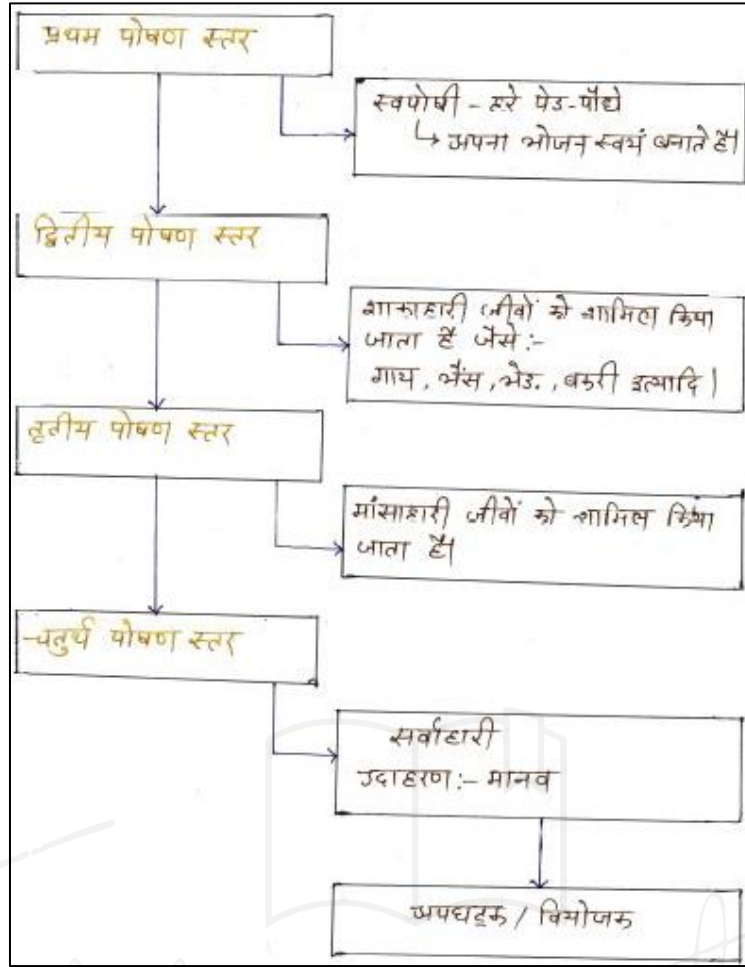 प्रथम पोषण स्तर
स्वपोषी - हरे पेड-पौधे
↳ अपना भोजन स्वयं बनाते है।
द्वितीय पोषण स्तर
शाकाहारी जीवों को शामिल किया
जाता है जैसे :-
गाय, भैंस, भेड़, बकरी इत्यादि।
तृतीय पोषण स्तर
मांसाहारी जीवों को शामिल किया
जाता है।
चतुर्थ पोषण स्तर
सर्वाहारी
उदाहरण :- मानव
अपघटक / वियोजक